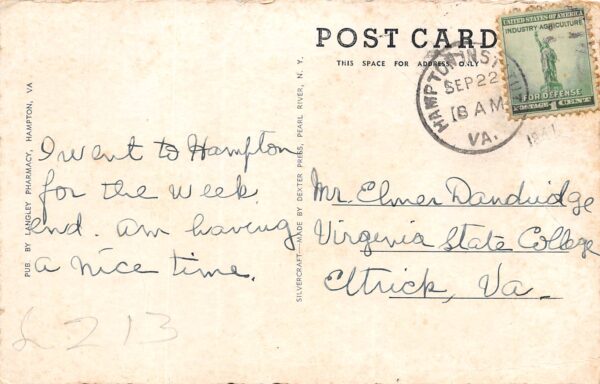 POST CARD
THIS SPACE FOR ADDRESS ONLY
UNITED STATES OF AMERICA
INDUSTRY AGRICULTURE
FOR DEFENSE
POSTAGE 1 CENT
HAMPTON INST
SEP 22
AM
VA.
1941
PUB. BY LANGLEY PHARMACY, HAMPTON, VA
SILVERCRAFT—MADE BY DEXTER PRESS, PEARL RIVER, N. Y.
I went to Hampton
for the week
end. am having
a nice time.
Mr. Elmer Dandridge
Virginia State College
Ettrick, Va.
£213